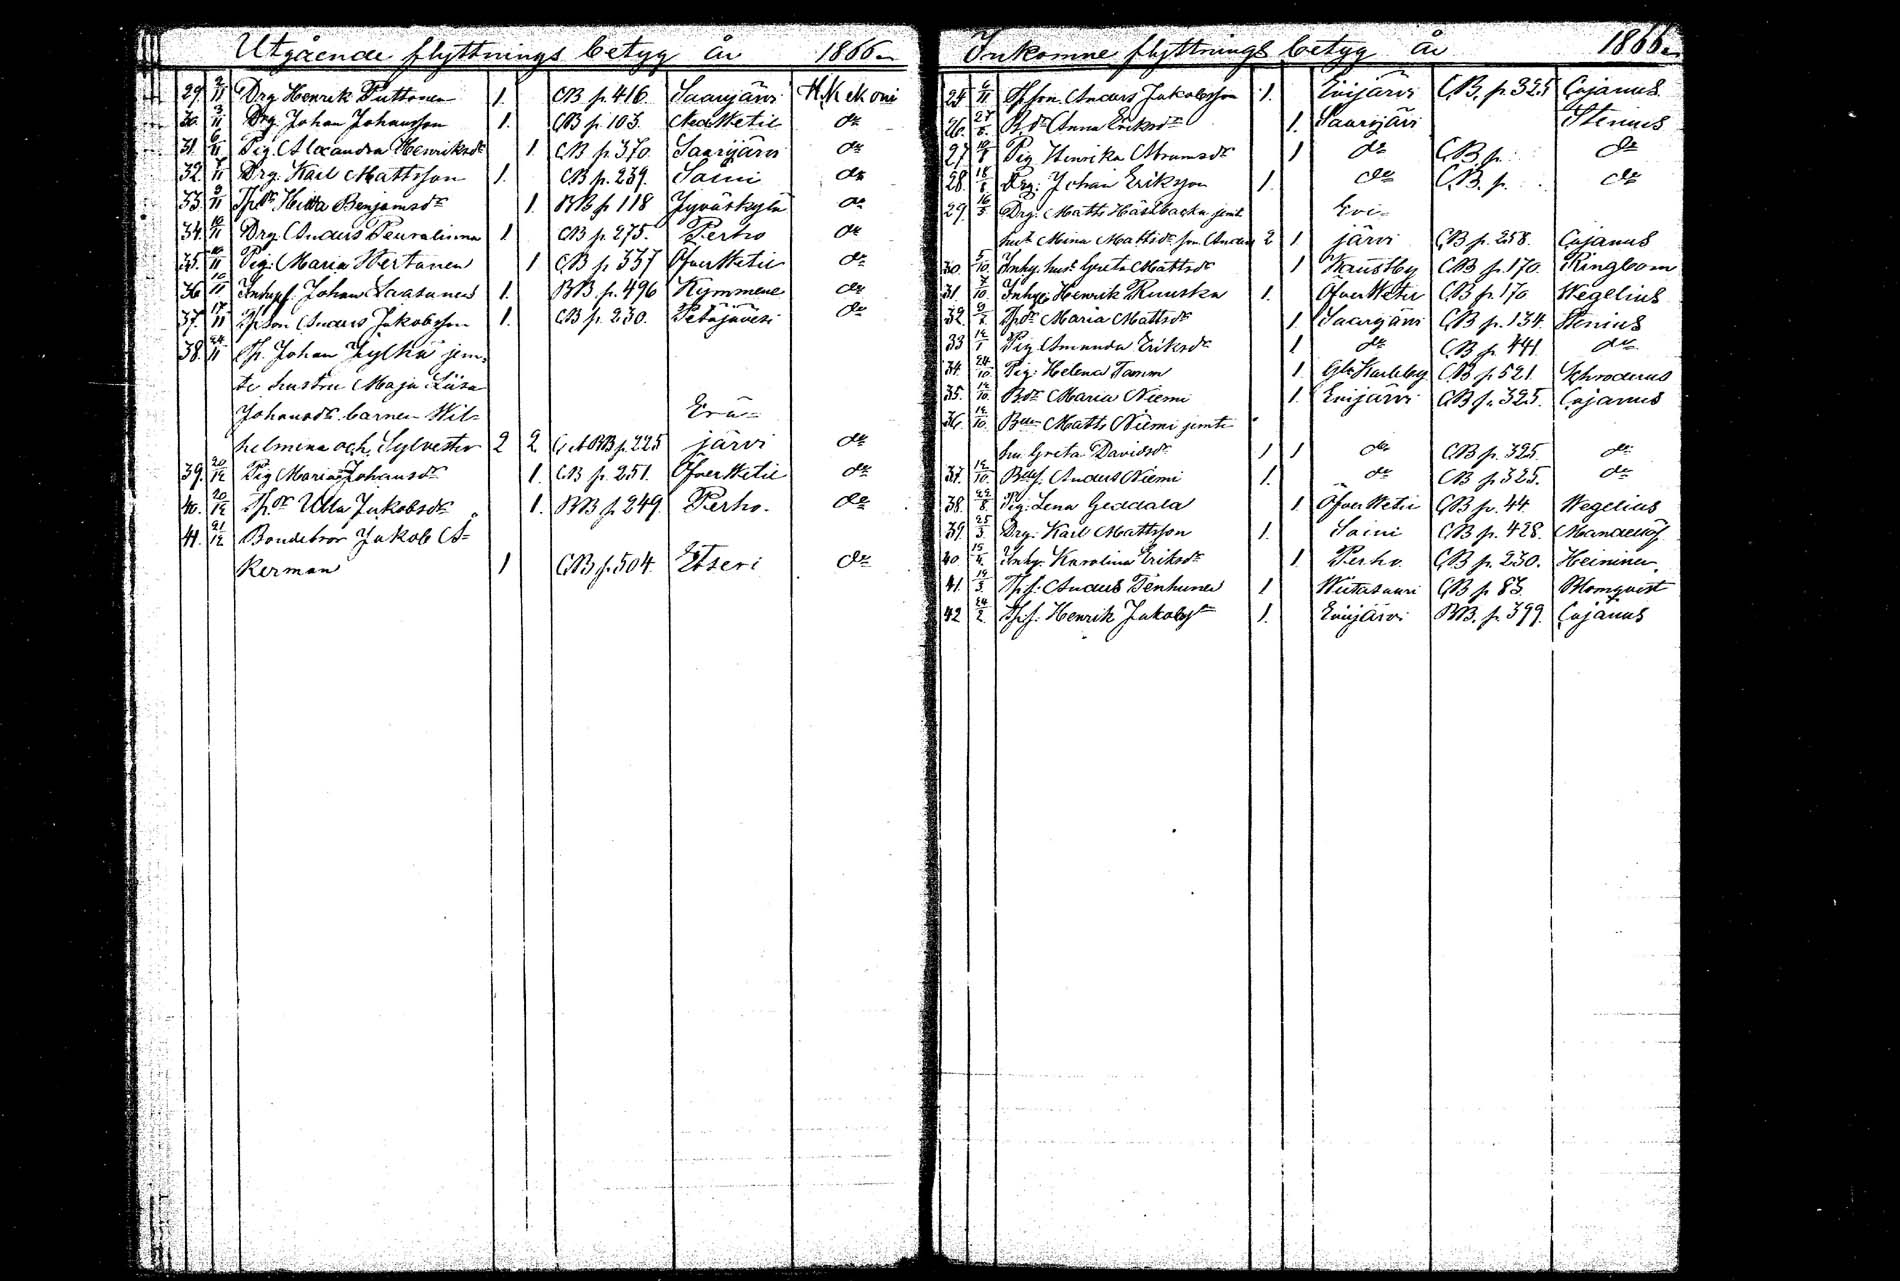 Utgående flyttnings betyg år 1866.
29. 2/11 Drg Henrik Puttonen 1. CB p. 416. Saarijärvi H. Kekoni
30. 3/11 Drg. Johan Johansson 1. CB p. 103. do
31. 6/11 Pig. Alexandra Henriksdr 1. CB p. 370. Saarijärvi do
32. 7/11 Drg. Karl Mattsson 1. CB p. 239. Soini do
33. 9/11 Tpdr Hedda Benjamsdr 1. BB p 118 Jyväskylä do
34. 10/11 Drg. Anders Peuralinna 1. CB p. 275. Perho do
35. 10/11 Pig. Maria Wertanen 1 CB p. 337 ÖfverWetil do
36 10/11 Johan Saasunen 1. BB p. 496 Kymmene do
37. 17/11 Tpson Anders Jakobsson 1. CB p. 230. Petäjävesi do
38. 24/11 Tp. Johan Jylhä jem=
te hustru Maja Liisa
Johansdr. barnen Wil= Evi=
helmina och Sylvester 2 2 BB p. 225 järvi do
39. 20/12 Pig Maria Johansdr 1. CB p. 251. ÖfverWetil do
40. 20/12 Tpdr Ulla Jakobsdr 1. BB p. 249. Perho. do
41. 21/12 Bondebror Jakob Å=
kerman 1 CB p. 504. Etseri do
Inkomne flyttnings betyg år 1866.
25. 6/11 Tpson. Anders Jakobsson 1. Evijärvi CB. p. 325 Cajanus
26. Bdr Anna Eriksdr 1. Saarijärvi Stenius
27. Pig Henrika Abramsdr 1 do CB. p. do
28. 18/8 Drg: Johan Eriksson 1. do CB. p. do
29. 16/5 Drg. Matts Hästbacka jemte Evi=
hust Mina Mattsdr son Anders 2 1 järvi CB p. 258. Cajanus
30. 5/10. Inhy. hust. Greta Mattsdr 1 Kaustby CB p. 170. Ringbom
31. 7/10. Inhys: Henrik Ruuska 1. ÖfverWetil CB p. 170 Wegelius
32. Tpdr Maria Mattsdr 1. Saarijärvi CB p. 134. Stenius
33 Pig Amanda Eriksdr 1 do CB p. 441. do
34. 24/10. Pig: Helena Tamm 1. Gl: Karleby CB p. 521. Schroderus
35. 14/10. Bdr Maria Niemi 1. Evijärvi CB p. 325. Cajanus
36. 14/10. Matts Niemi jemte
hu Greta Davidsdr 1 1 do CB p. 325. do
37. 14/10. Anders Niemi 1. do CB p 325. do
38. 22/8. Pig: Lena Geddala 1 ÖfverWetil CB p. 44. Wegelius
39. 25/3. Drg: Karl Mattsson 1. Soini CB p. 428. Mandellöf
40 Inhy. Karolina Eriksdr 1 Perho CB p. 230. Heininen.
41. 14/3. Tpf: Anders Tenhunen 1 Wiitasaari CB p. 83. Blomqvist
42 24/2. Tpf: Henrik Jakobsn 1. Evijärvi BB. p. 399. Cajanus